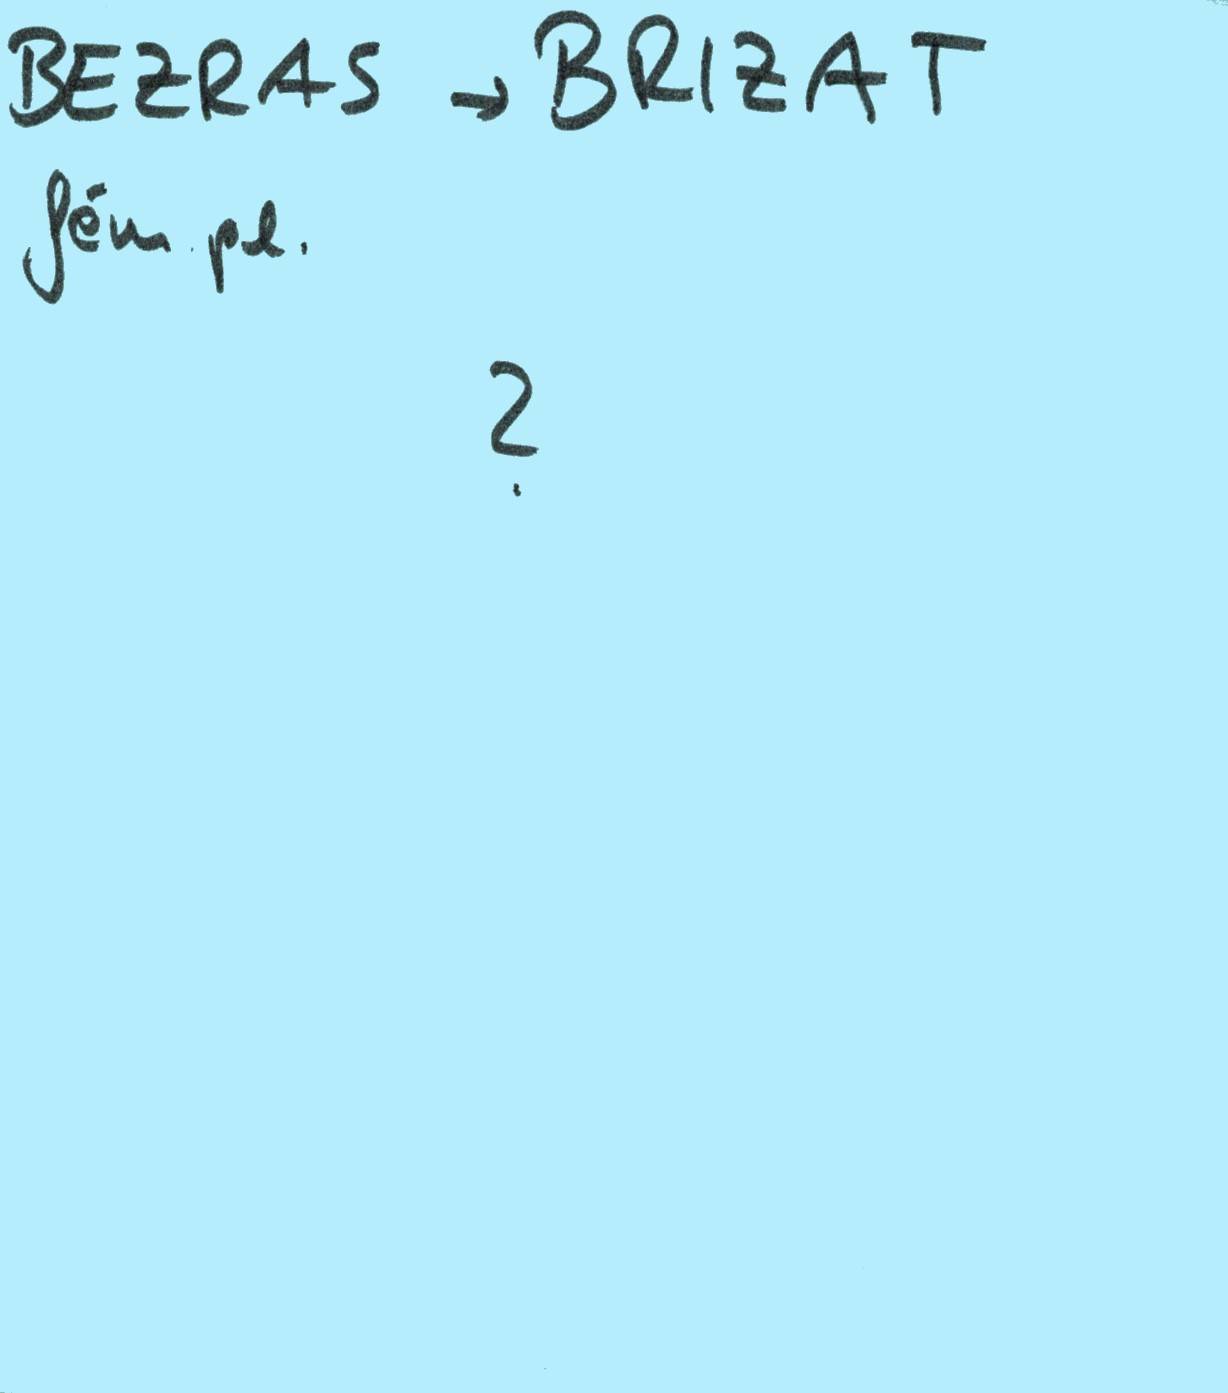 BEZRAS → BRIZAT
fém. pl.
?